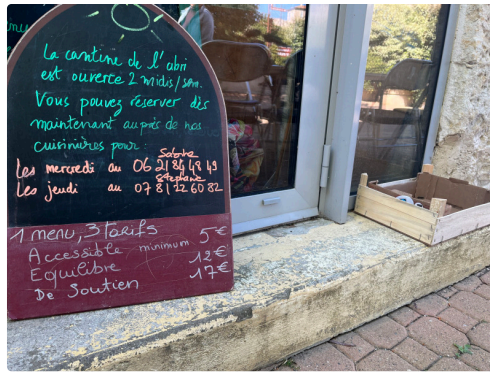 La cantine de l'abri
est ouverte 2 midis/sem.
Vous pouvez réserver dès
maintenant auprès de nos
cuisinières pour :
Sabrina
Les mercredi au 06 21 84 48 49
Stéphane
Les jeudi au 07 81 22 60 82
1 menu, 3 tarifs
Accessible minimum 5€
Equilibre 12€
De Soutien 17€